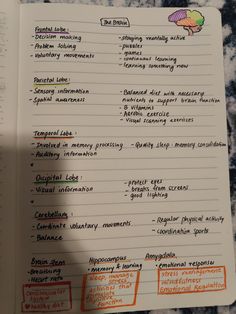 The Brain
Frontal Lobe:
- Decision making - staying mentally active
- Problem solving - puzzles
- Voluntary movements - games
- continual learning
- learning something new
Parietal Lobe:
- Sensory information - Balanced diet with necessary
- Spatial awareness nutrients to support brain function
- B vitamins
- Aerobic exercise
- Visual scanning exercises
Temporal Lobe:
- Involved in memory processing - Quality sleep - memory consolidation
- Auditory information
Occipital Lobe:
- Visual information - protect eyes
- breaks from screens
- good lighting
Cerebellum:
- Coordinate voluntary movements - Regular physical activity
- Balance - coordination sports
Brain stem Hippocampus Amygdala
- Breathing - memory & learning - emotional response
- Heart rate
Cardiovascular
healthy diet
sleep
manage
stress
activities that
function
stress management
mindfulness
Emotional Regulation